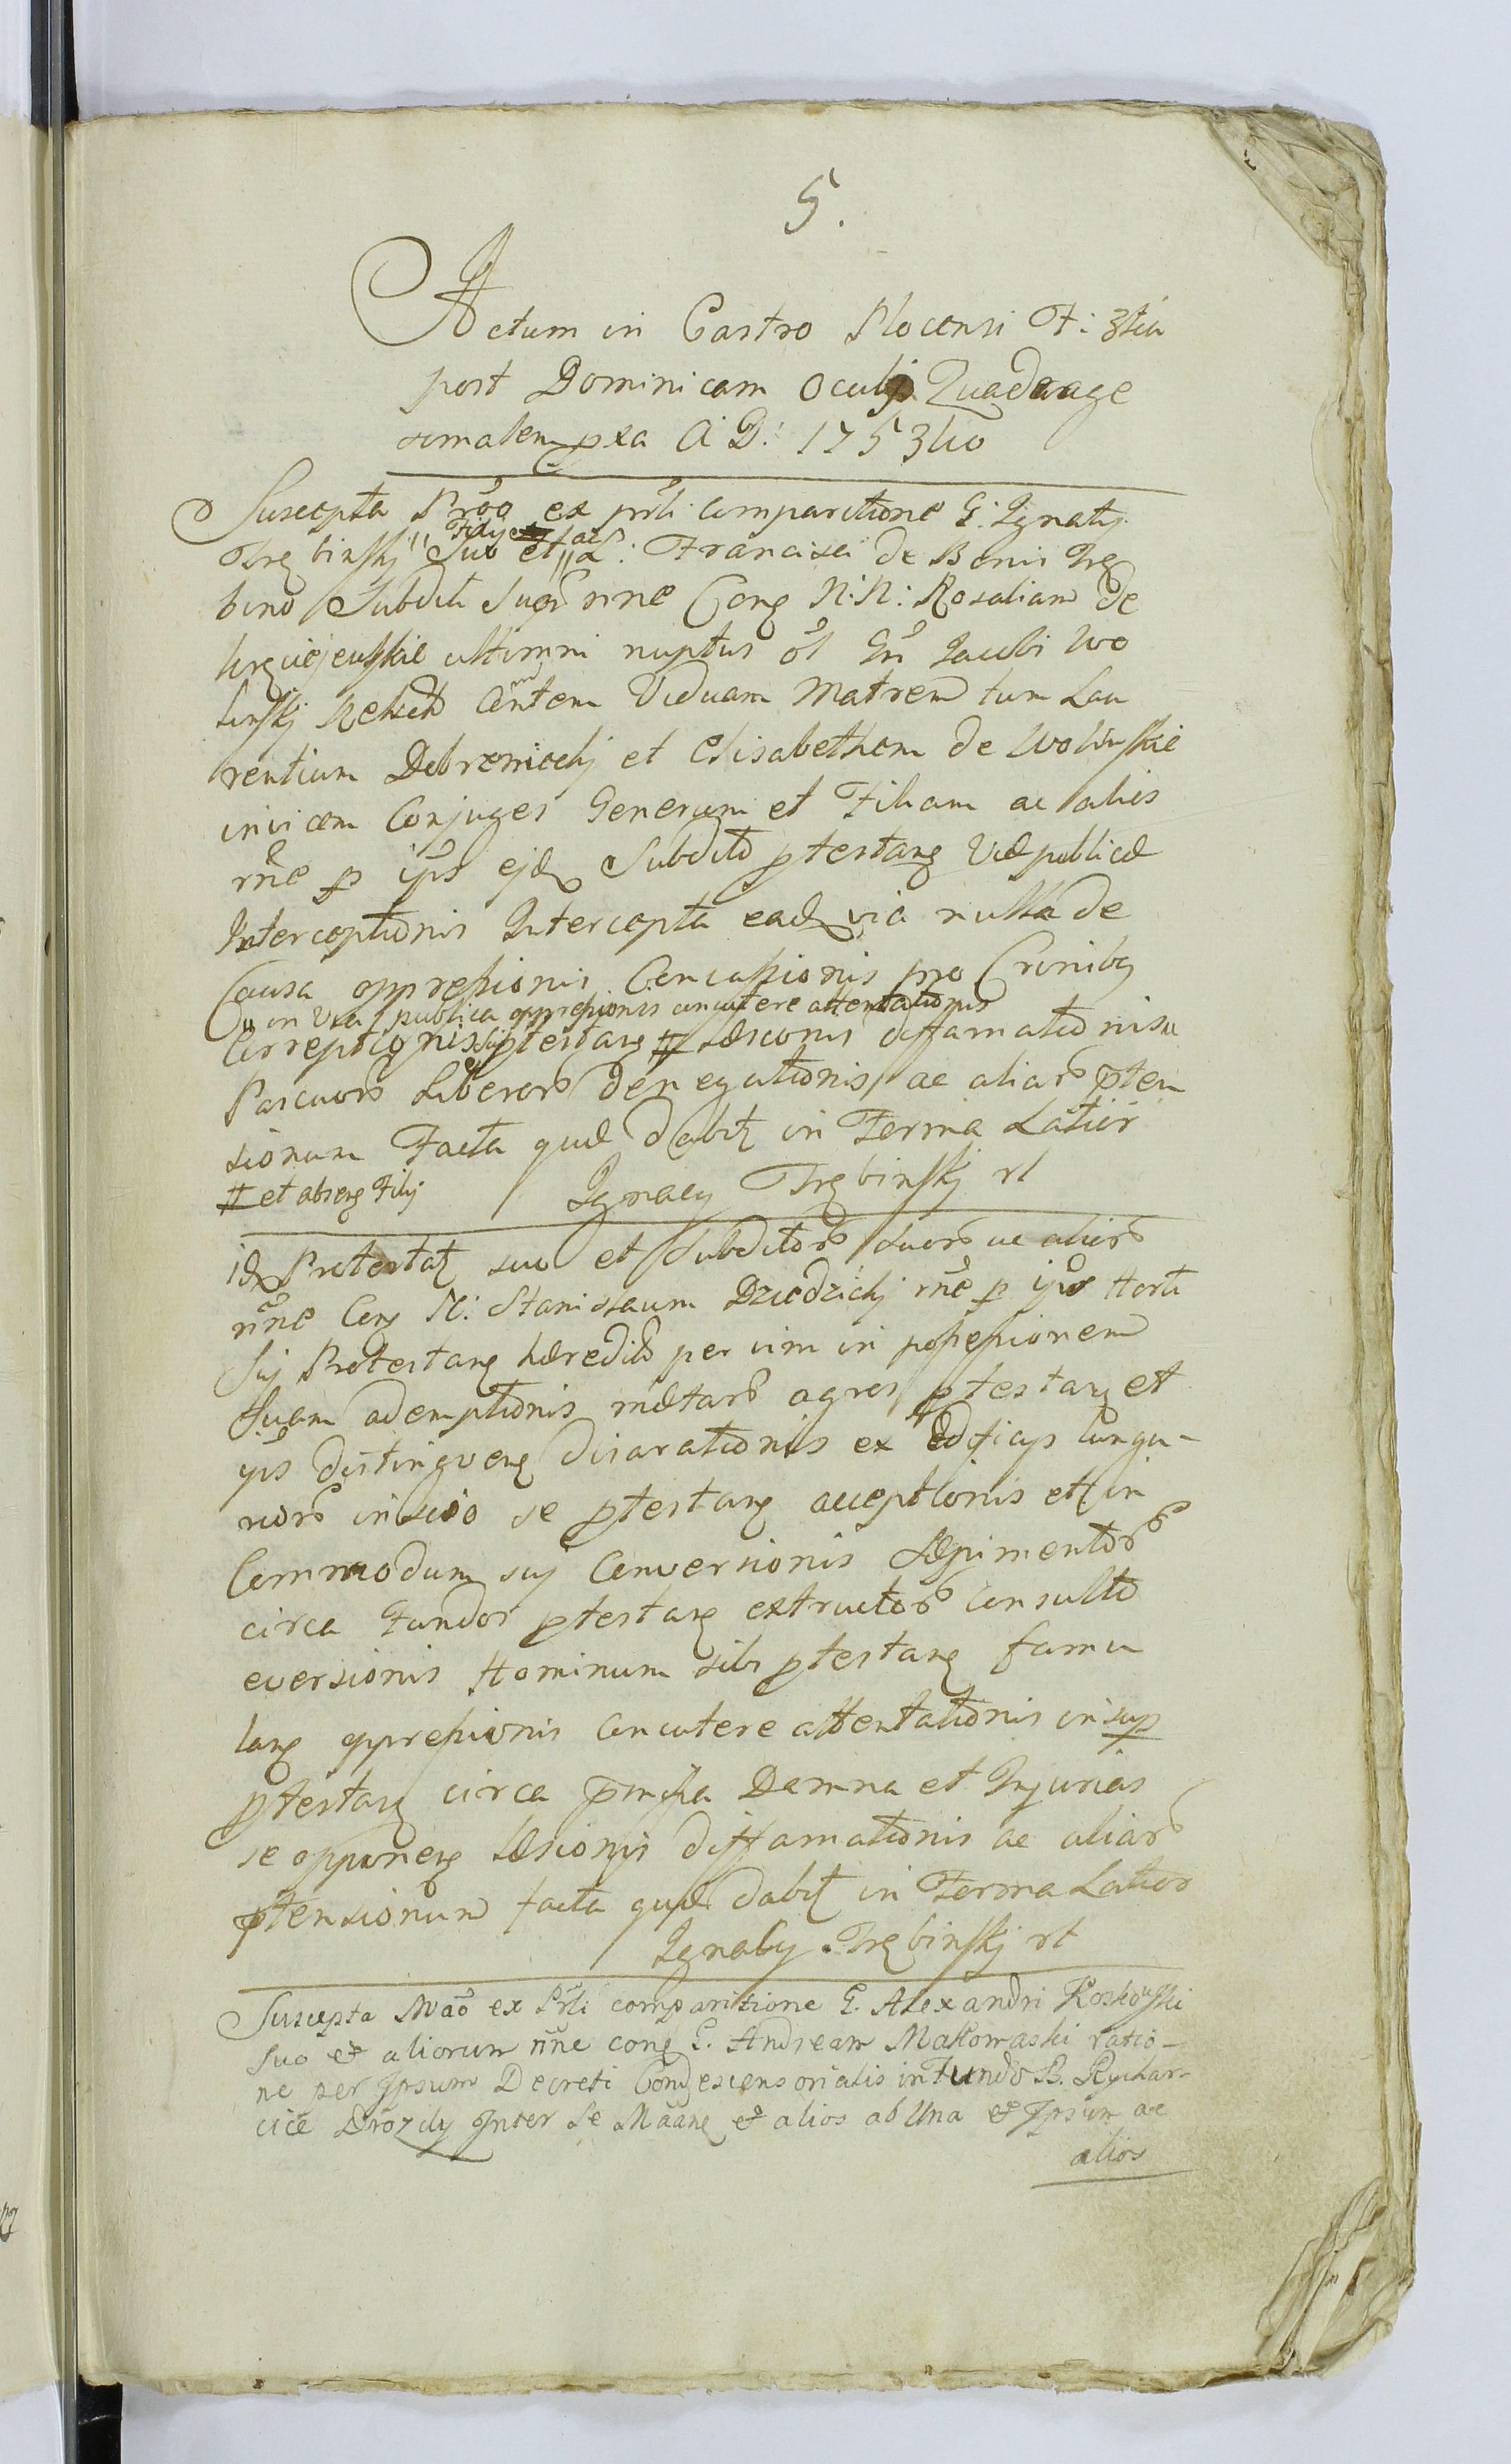 5.
Actum in Castro Plocensi F: 3tia
post Dominicam Oculi Quadrage
simalem pxa A D: 1753tio
Suscepta Prõo ex prńti comparitione G: Ignatij
Trębinskj Suo et Filij ac L: Francisci de Bonis Trę
bino Subditi Suor nne Cong N: N: Rosaliam de
ultimni nuptus ol Gń Jacobi Wo
linskj Relictã Viduam Matrem tum Lau
rentium Dobrzenieckj et Elisabetham de Wolinskie
invicem Conjuges Generum et Filiam ac alios
rńe p ipõs ejd Subdito ptestang Viæ publicæ
Interceptionis Intercepta eadq via nulla de
Causa oppressionis Concussionis pro Crinibq
" in Via publica oppressionis concutere attentationis
Correptionis sui ptestang # Læsionis diffamationis
Pascuorõ Liberorõ denegationis ac aliarõ pten
sionum Facta quæ dabit in Forma Latior
# et absenq Filij Ignacy Trębinskj rt
idq Protestat suo et Subditorõ suorõ ac aliorõ
nńe Cong N: Stanislaum Dziedzickj rńe p ipõs Horti
Sui Protestang hæredit per vim in possessionem
Suam ademptionis metarõ agros ptestang et
ipõs distingveng disarationis ex ædificijs
in scio se ptestang acceptionis et in
Commodum sui Conversionis Sæpimentorõ
circa Fundos ptestang extructorõ consulto
eversionis Hominum sibi ptestang famu
lang oppressionis concutere attentationis insup
ptestang circa pmissa Damna et Injurias
se opponeng Læsionis diffamationis ac aliarõ
ptensionum facta quæ dabit in Forma Latior
Ignacy Trębinskj rt
Suscepta Mãao ex Prńti comparitione G. Alexandri Koskowski
suo et aliorum nńe cong G. Andream Makomaski ratio-
ne per Ipsum Decreti Condescensorialis in Fundo B. Rychar-
cice Drozdy Inter Se Mãang et alios ab Una et Ipsum ac
alios